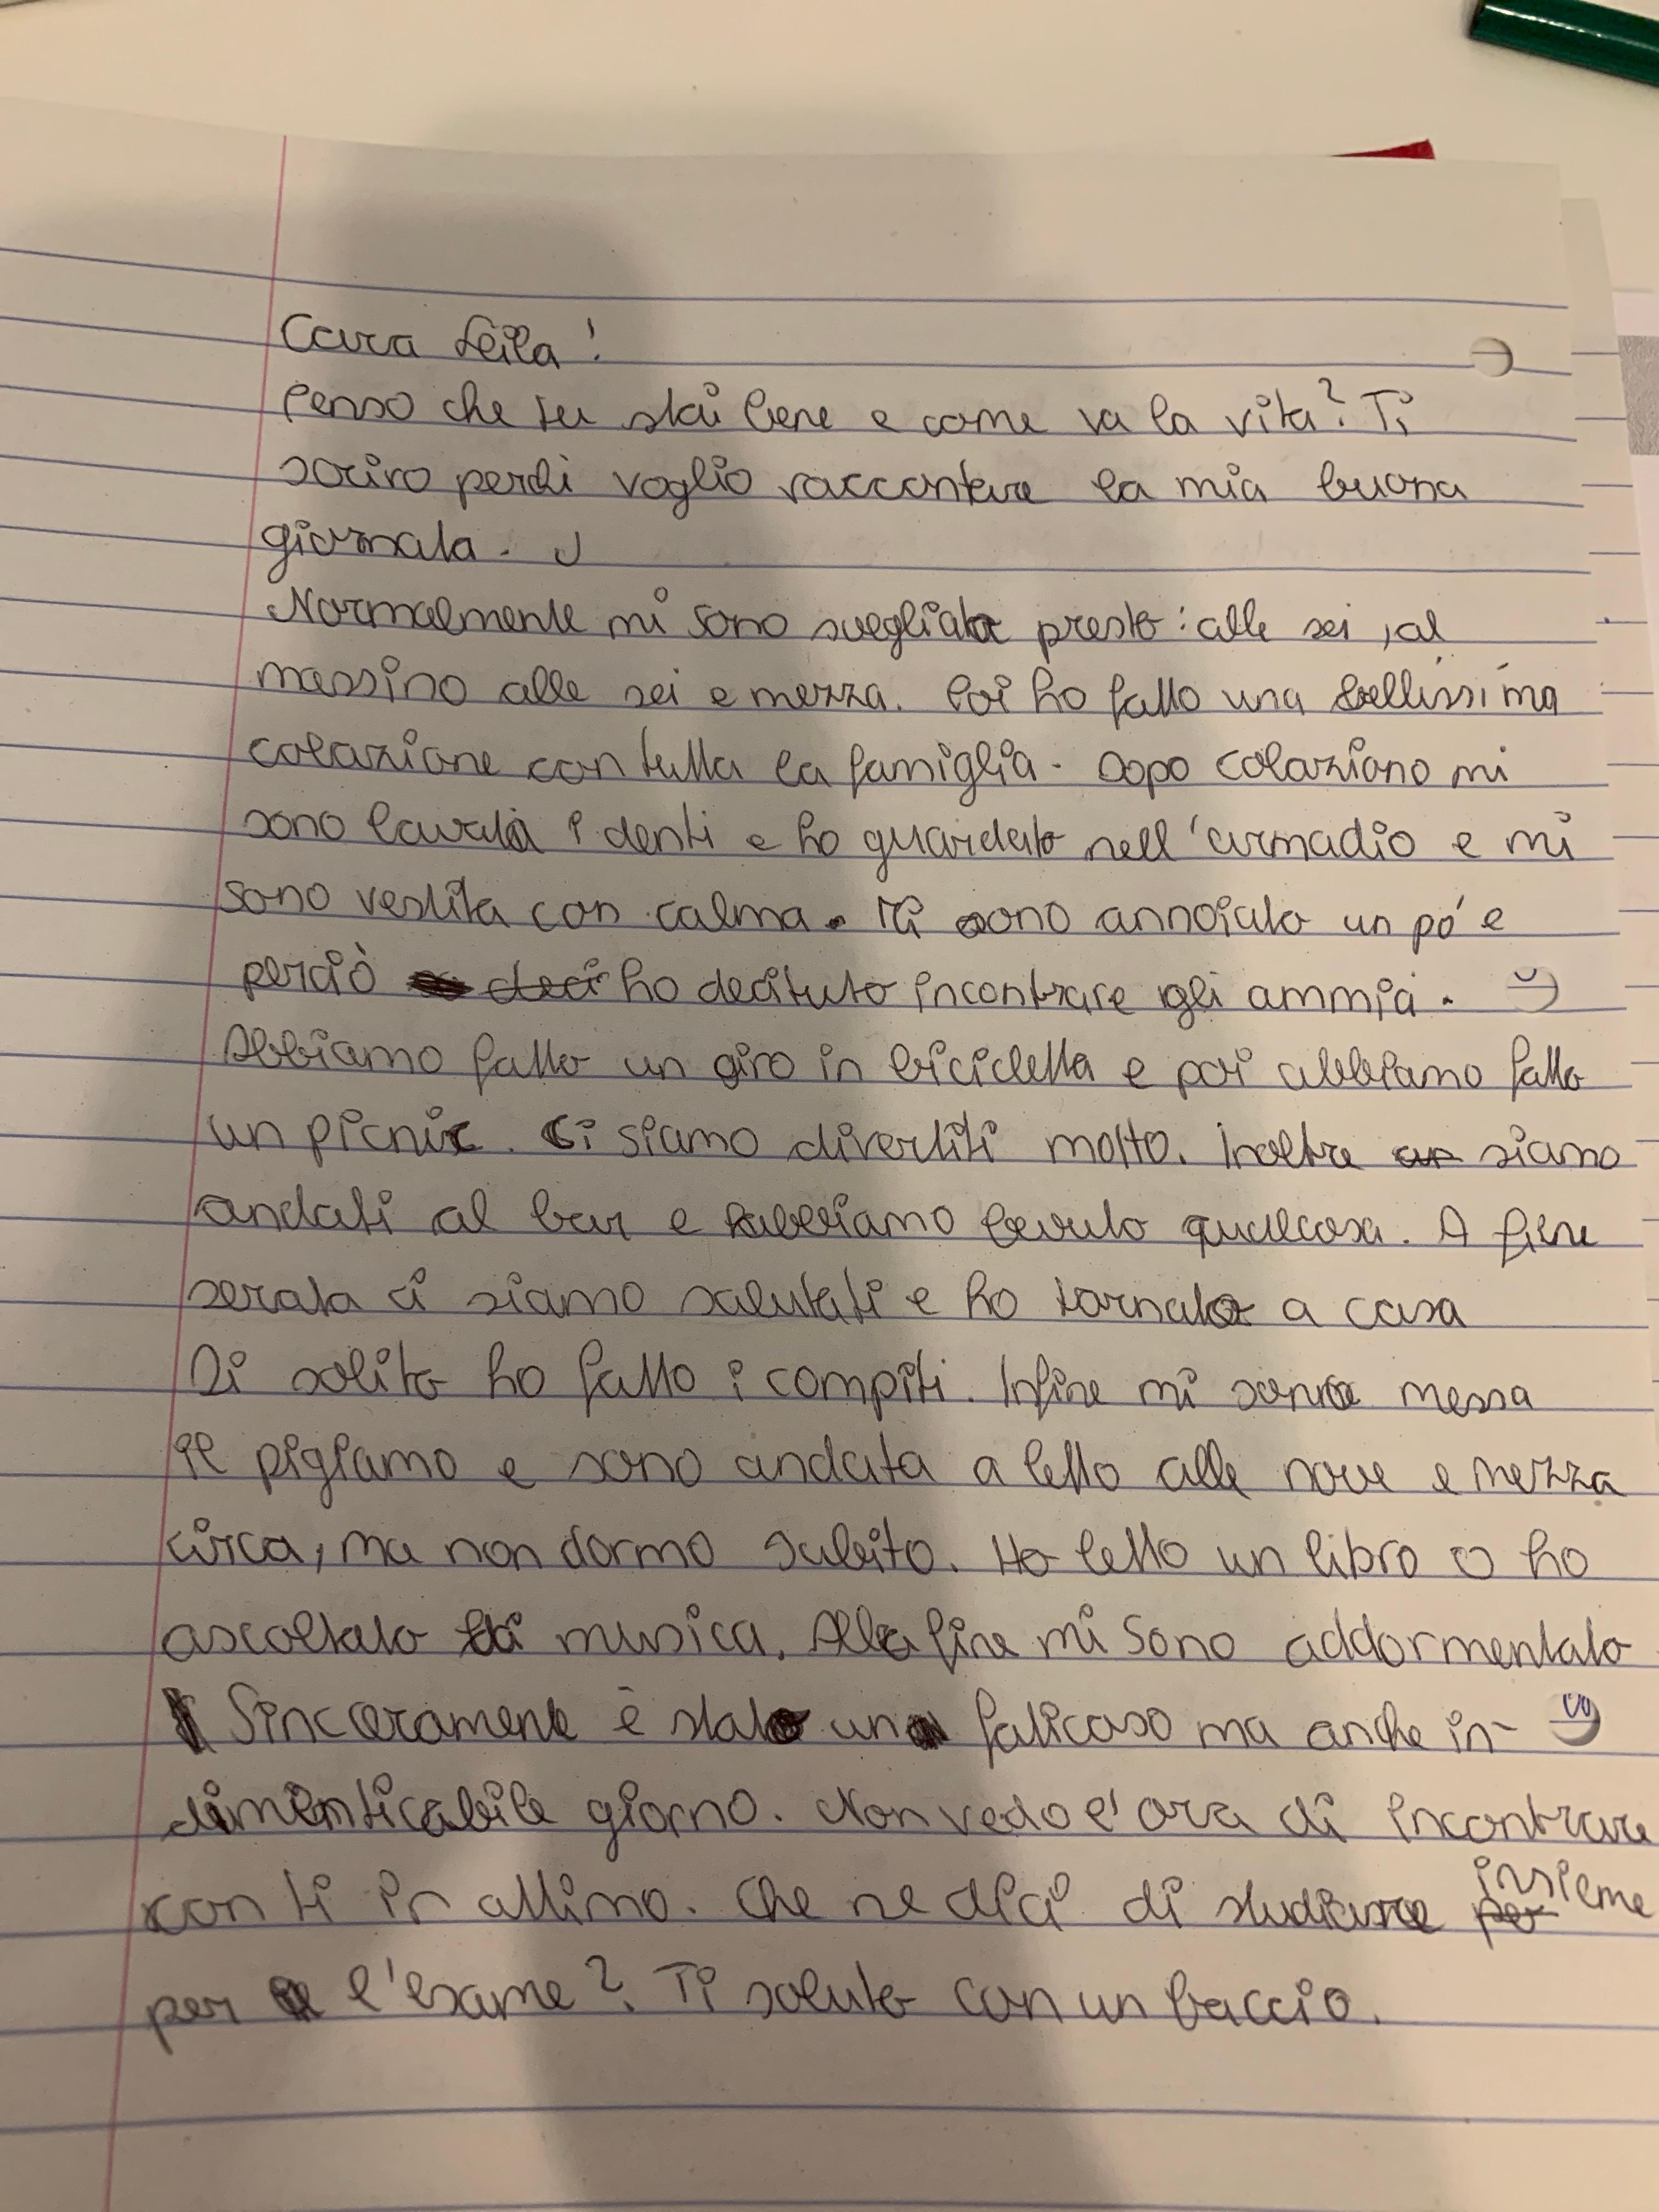 Cara Leila!
Penso che tu stai bene e come va la vita? Ti
scrivo perchè voglio raccontare la mia buona
giornata.
Normalmente mi sono svegliata presto: alle sei, al
massimo alle sei e mezza. Poi ho fatto una bellissima
colazione con tutta la famiglia. Dopo colaziono mi
sono lavata i denti e ho guardato nell'armadio e mi
sono vestita con calma. Mi sono annoiato un pó e
perciò ho decituto incontrare gli ammici.
Abbiamo fatto un giro in bicicletta e poi abbiamo fatto
un picnic. Ci siamo divertiti molto. Inoltre siamo
andati al bar e abbiamo bevuto qualcosa. A fine
serata ci siamo salutati e ho tornato a casa
Di solito ho fatto i compiti. Infine mi sono messa
il pigiamo e sono andata a letto alle nove e mezza
circa, ma non dormo subito. Ho letto un libro o ho
ascoltato di musica. Alla fine mi sono addormentato
Sinceramente è stato un faticoso ma anche in-
dimenticabile giorno. Non vedo l'ora di incontrare
con ti in attimo. Che ne dici di studiare insieme
per l'esame? Ti saluto con un baccio.